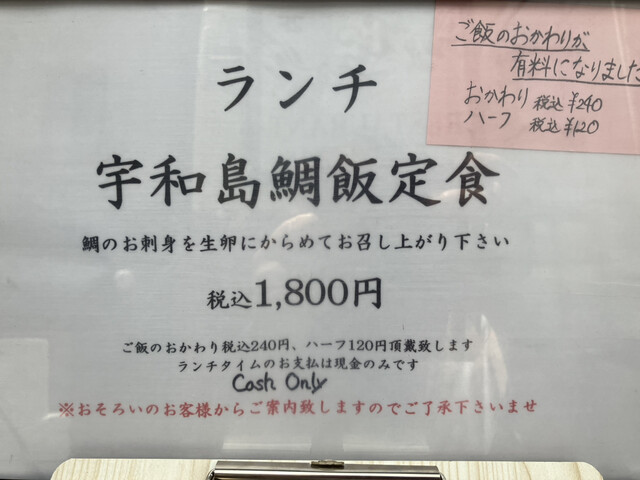 ご飯のおかわりが
有料になりました
おかわり 税込 ¥240
ハーフ 税込 ¥120
ランチ
宇和島鯛飯定食
鯛のお刺身を生卵にからめてお召し上がり下さい
税込1,800円
ご飯のおかわり税込240円、ハーフ120円頂戴致します
ランチタイムのお支払は現金のみです
Cash Only
※おそろいのお客様からご案内致しますのでご了承下さいませ